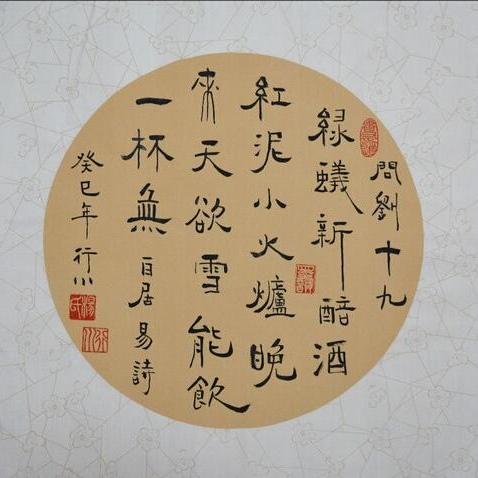 問劉十九
緑蟻新醅酒
紅泥小火爐晚
來天欲雪能飲
一杯無 白居易詩
癸巳年 行川
楊氏